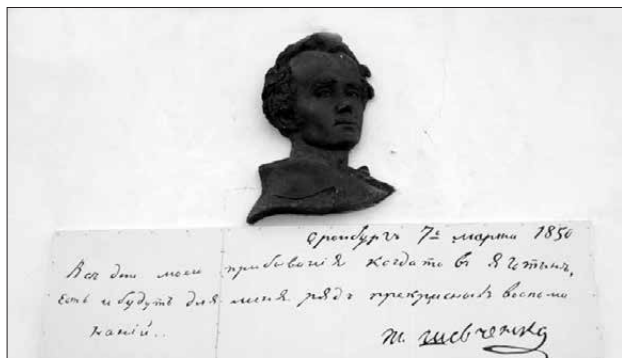 Оренбургъ 7е марта 1850
Все дни моего прибыванія когда то въ Яготынѣ,
есть и будутъ для меня рядъ прекрасныхъ воспоми
наній..
Т. Шевченко